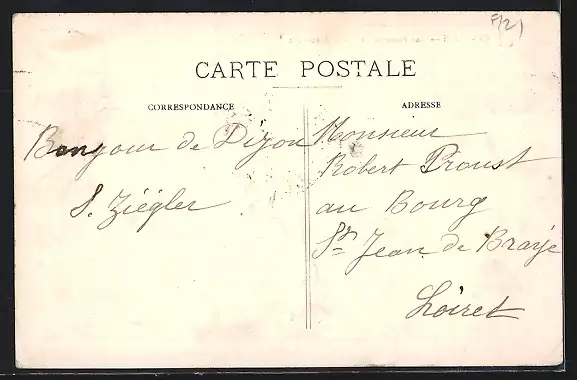 F/2)
CARTE POSTALE
CORRESPONDANCE
ADRESSE
Bonjour de Dijon
S. Ziégler
Monsieur
Robert Proust
au Bourg
St Jean de Braye
Loiret